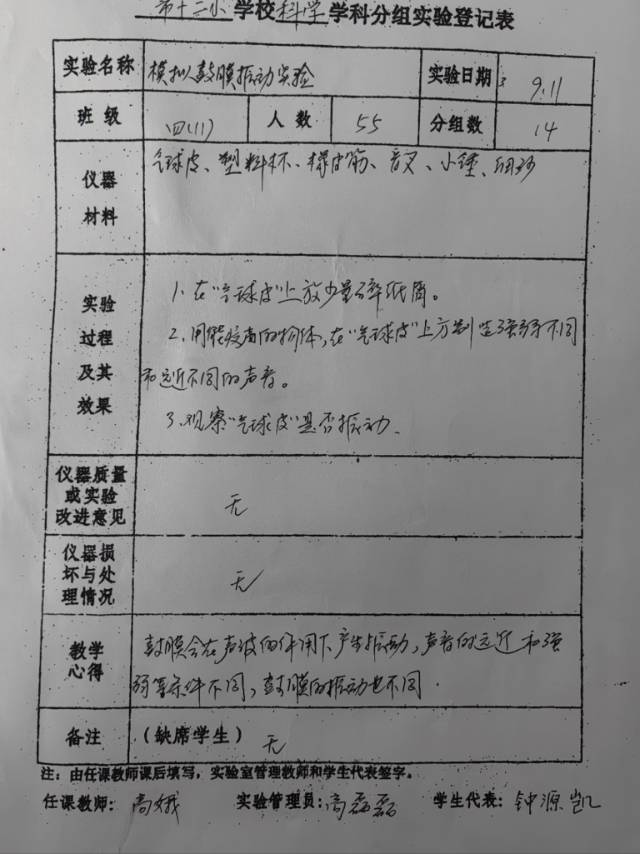 第十二小学校科学学科分组实验登记表
实验名称 模拟鼓膜振动实验 实验日期 9.11
班级 四(1) 人数 55 分组数 14
仪器材料 气球皮、塑料杯、橡皮筋、音叉、小锤、细沙
实验过程及其效果
1、在"气球皮"上放少量碎纸屑。
2、用能发声的物体,在"气球皮"上方制造强弱不同
和远近不同的声音。
3、观察"气球皮"是否振动.
仪器质量或实验改进意见 无
仪器损坏与处理情况 无
教学心得 鼓膜会在声波的作用下产生振动,声音的远近和强
弱等条件不同,鼓膜的振动也不同.
备注 (缺席学生) 无
注:由任课教师课后填写,实验室管理教师和学生代表签字。
任课教师:高娥 实验管理员:高磊磊 学生代表:钟源凯